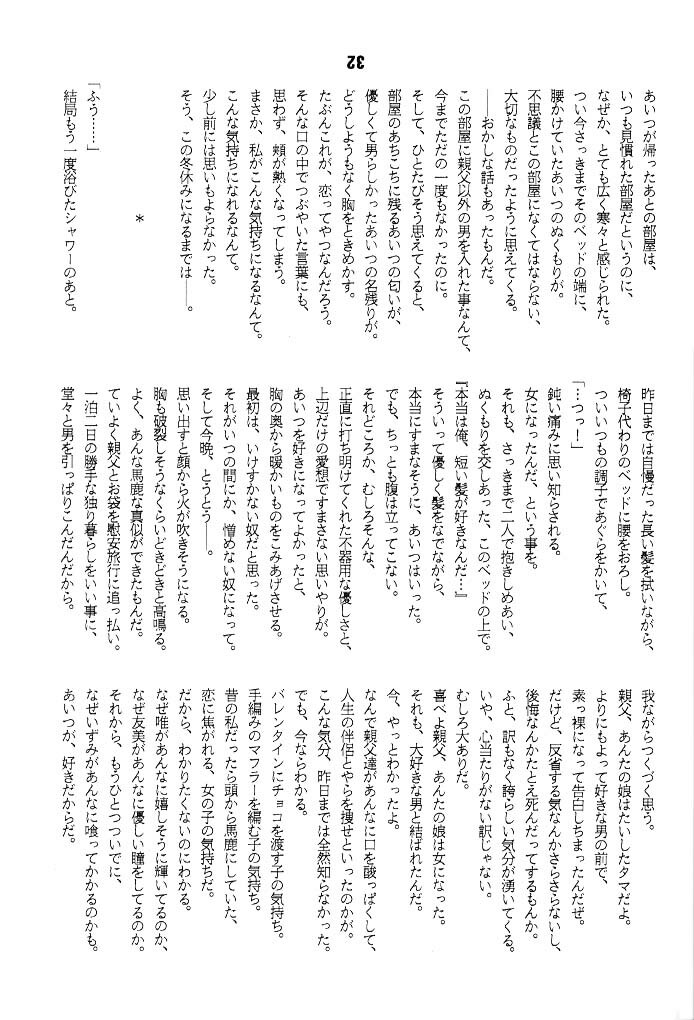 32
あいつが帰ったあとの部屋は、
いつも見慣れた部屋だというのに、
なぜか、とても広く寒々と感じられた。
つい今さっきまでそのベッドの端に、
腰かけていたあいつのぬくもりが。
不思議とこの部屋になくてはならない、
大切なものだったように思えてくる。
――おかしな話もあったもんだ。
この部屋に親父以外の男を入れた事なんて、
今までただの一度もなかったのに。
そして、ひとたびそう思えてくると、
部屋のあちこちに残るあいつの匂いが、
優しくて男らしかったあいつの名残りが。
どうしようもなく胸をときめかす。
たぶんこれが、恋ってやつなんだろう。
そんな口の中でつぶやいた言葉にも、
思わず、頬が熱くなってしまう。
まさか、私がこんな気持ちになるなんて。
こんな気持ちになれるなんて。
少し前には思いもよらなかった。
そう、この冬休みになるまでは――。
＊
「ふう……」
結局もう一度浴びたシャワーのあと。
昨日までは自慢だった長い髪を拭いながら、
椅子代わりのベッドに腰をおろし。
ついいつもの調子であぐらをかいて、
「…つっ！」
鈍い痛みに思い知らされる。
女になったんだ、という事を。
それも、さっきまで二人で抱きしめあい、
ぬくもりを交しあった、このベッドの上で。
『本当は俺、短い髪が好きなんだ…』
そういって優しく髪をなでながら、
本当にすまなそうに、あいつはいった。
でも、ちっとも腹は立ってこない。
それどころか、むしろそんな、
正直に打ち明けてくれた不器用な優しさと、
上辺だけの愛想ですまさない思いやりが。
あいつを好きになってよかったと、
胸の奥から暖かいものをこみあげさせる。
最初は、いけすかない奴だと思った。
それがいつの間にか、憎めない奴になって。
そして今晩、とうとう――。
思い出すと顔から火が吹きそうになる。
胸も破裂しそうなくらいどきどきと高鳴る。
よく、あんな馬鹿な真似ができたもんだ。
ていよく親父とお袋を慰安旅行に追っ払い。
一泊二日の勝手な独り暮らしをいい事に、
堂々と男を引っぱりこんだんだから。
我ながらつくづく思う。
親父、あんたの娘はたいしたタマだよ。
よりにもよって好きな男の前で、
素っ裸になって告白しちまったんだぜ。
だけど、反省する気なんかさらさらないし、
後悔なんかたとえ死んだってするもんか。
ふと、訳もなく誇らしい気分が湧いてくる。
いや、心当たりがない訳じゃない。
むしろ大ありだ。
喜べよ親父、あんたの娘は女になった。
それも、大好きな男と結ばれたんだ。
今、やっとわかったよ。
なんで親父達があんなに口を酸っぱくして、
人生の伴侶とやらを捜せといったのかが。
こんな気分、昨日までは全然知らなかった。
でも、今ならわかる。
バレンタインにチョコを渡す子の気持ち。
手編みのマフラーを編む子の気持ち。
昔の私だったら頭から馬鹿にしていた、
恋に焦がれる、女の子の気持ちだ。
だから、わかりたくないのにわかる。
なぜ唯があんなに嬉しそうに輝いてるのか、
なぜ友美があんなに優しい瞳をしてるのか。
それから、もうひとつついでに、
なぜいずみがあんなに喰ってかかるのかも。
あいつが、好きだからだ。